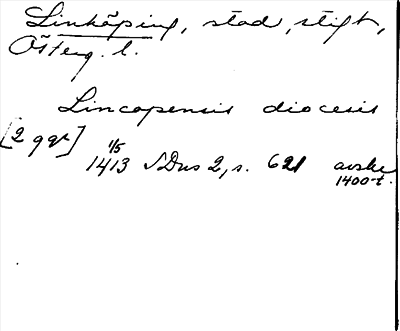 Linköping, stad, stift,
Österg. l.
Lincopensis diocesis
[2 ggr]
1/5
1413 SDns 2, s. 621 avskr.
1400-t.